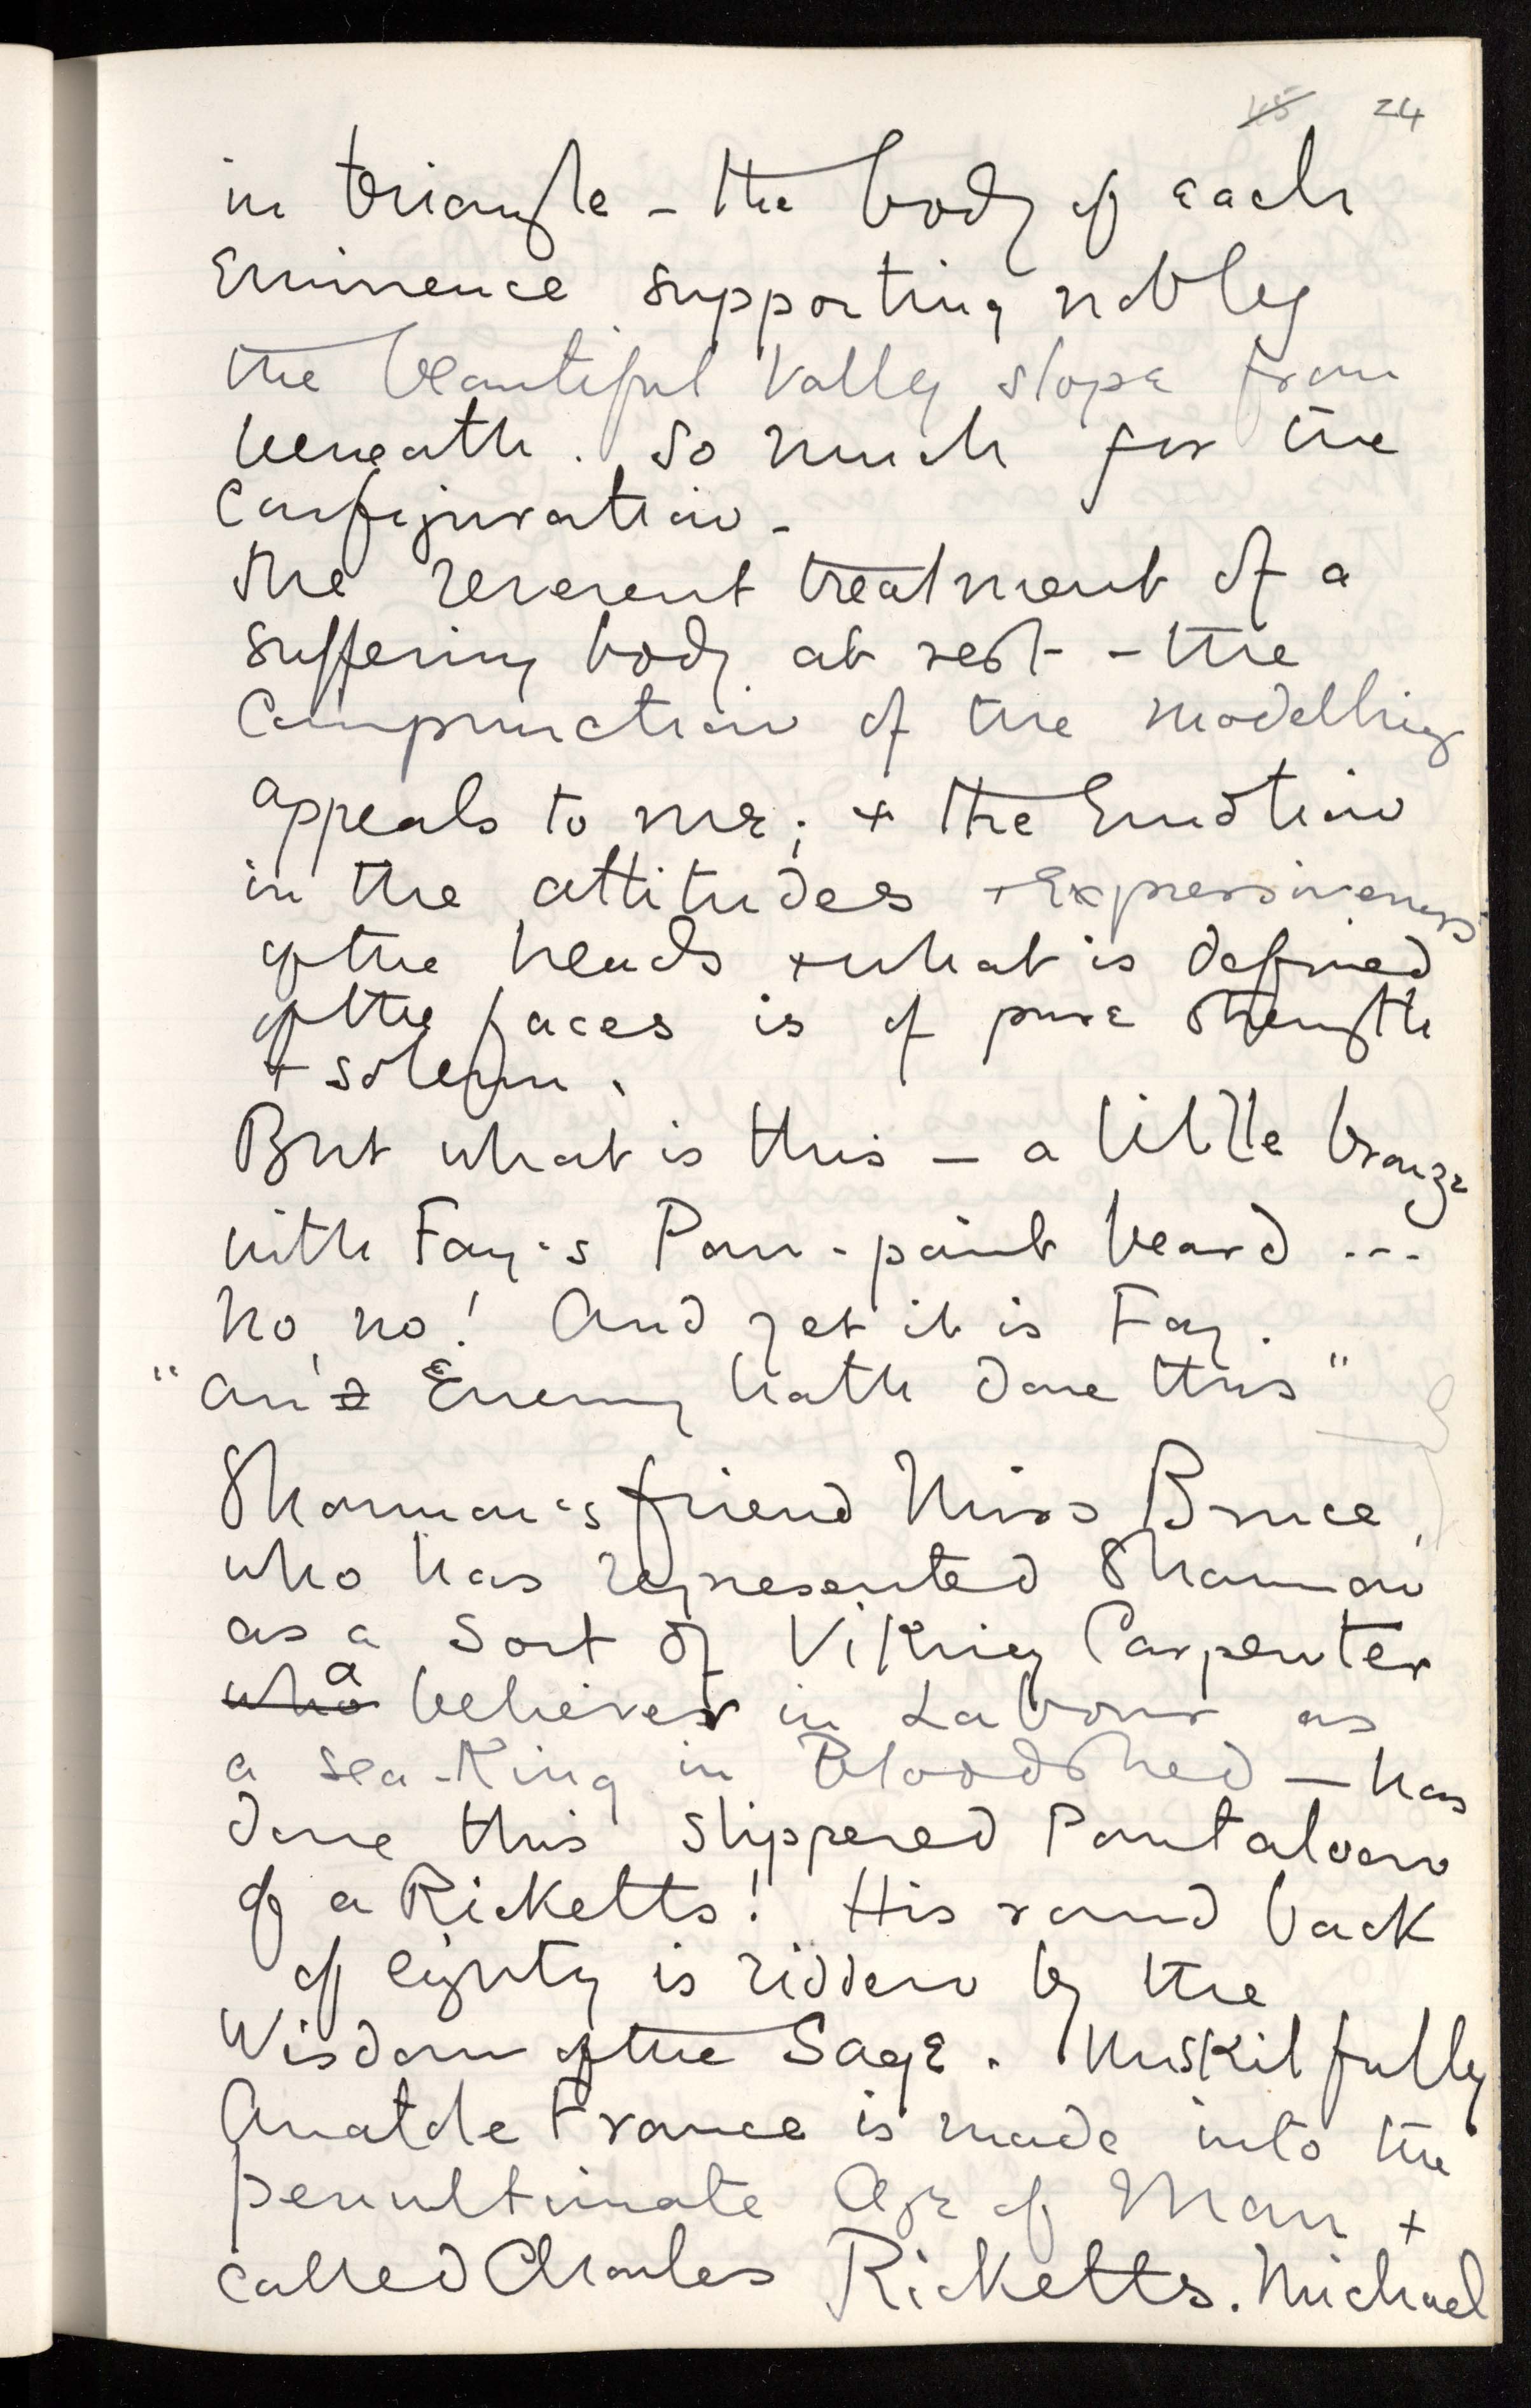 24
in triangle - the body of each
Eminence supporting nobley
the beautiful Valley slope from
beneath. So much for the
Configuration -
The reverent treatment of a
suffering body at rest - the
Compunction of the modelling
appeals to me; + the Emotion
in the attitudes + Expressiveness
of the heads + what is defined
of the faces is of pure strength
+ solemn.
But what is this — a little bronze
with Fay's Pan-point beard ...
No, no! And yet it is Fay.
"An Enemy hath done this"
Shannon's friend Miss Bruce,
who has represented Shannon
as a sort of Viking Carpenter
who a believer in Labour as
a sea-King in Bloodshed — has
done this slippered Pantaloon
of a Ricketts! His round back
of eighty is ridden by the
Wisdom of the Sage. Unskilfully
Anatole France is made into the
penultimate Age of Man +
called Charles Ricketts. Michael